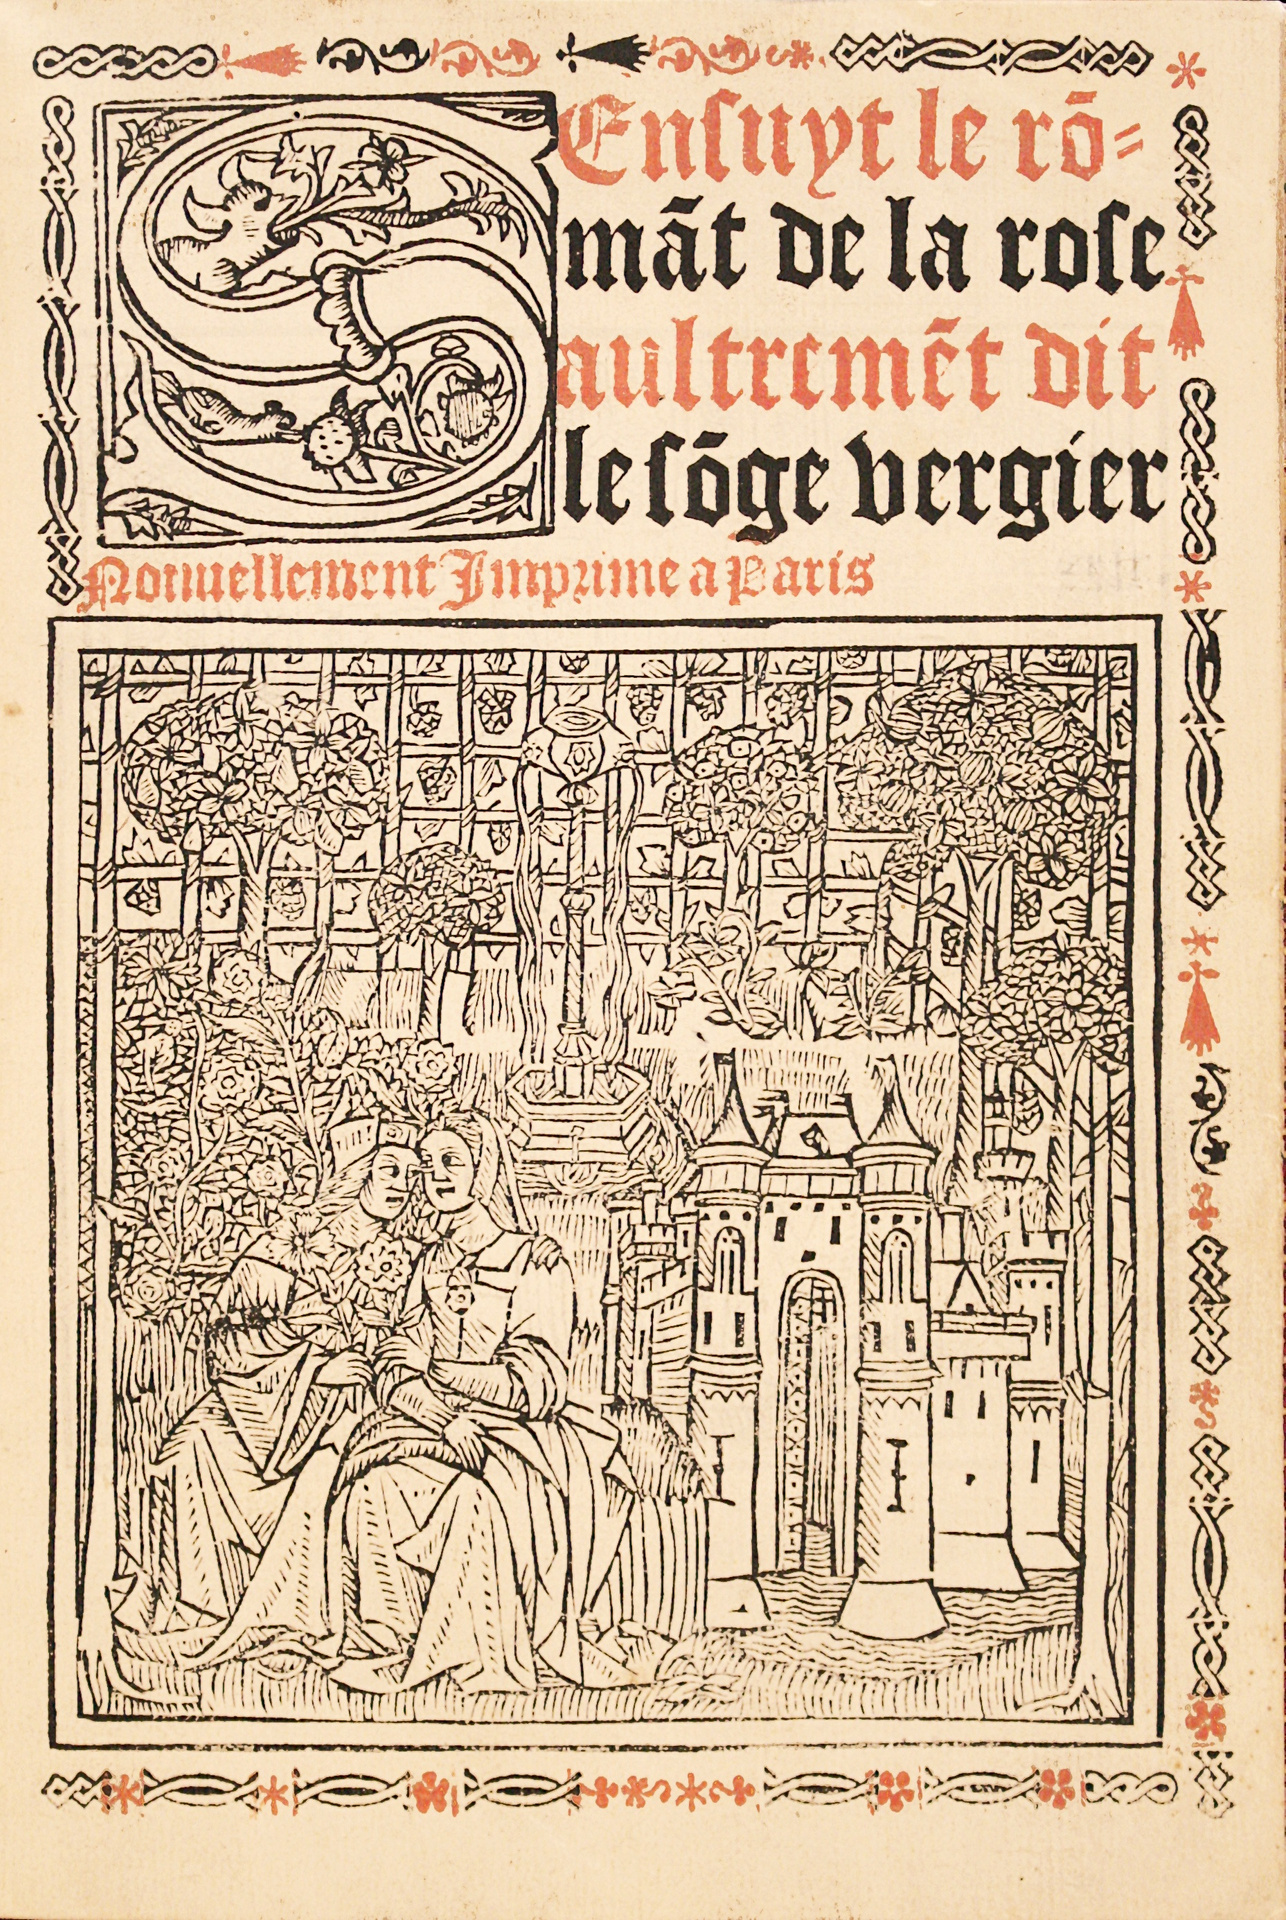 SEnſuyt le rō=
mãt de la roſe
aultremēt dit
le ſōge vergier
Nouuellement Imprime a Paris